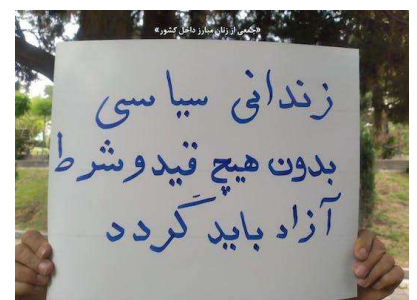 «جمعی از زنان مبارز داخل کشور»
زندانی سیاسی
بدون هیچ قیدوشرط
آزاد باید گردد